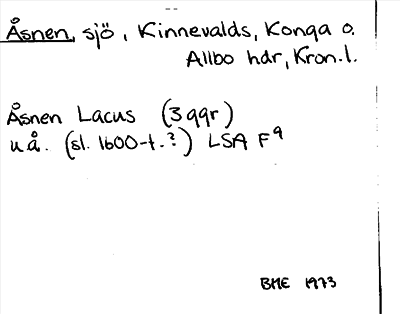 Åsnen, sjö, Kinnevalds, Konga o.
Allbo hdr, Kron.l.
Åsnen Lacus (3 ggr)
u å. (sl. 1600-t.?) LSA F9
BME 1973